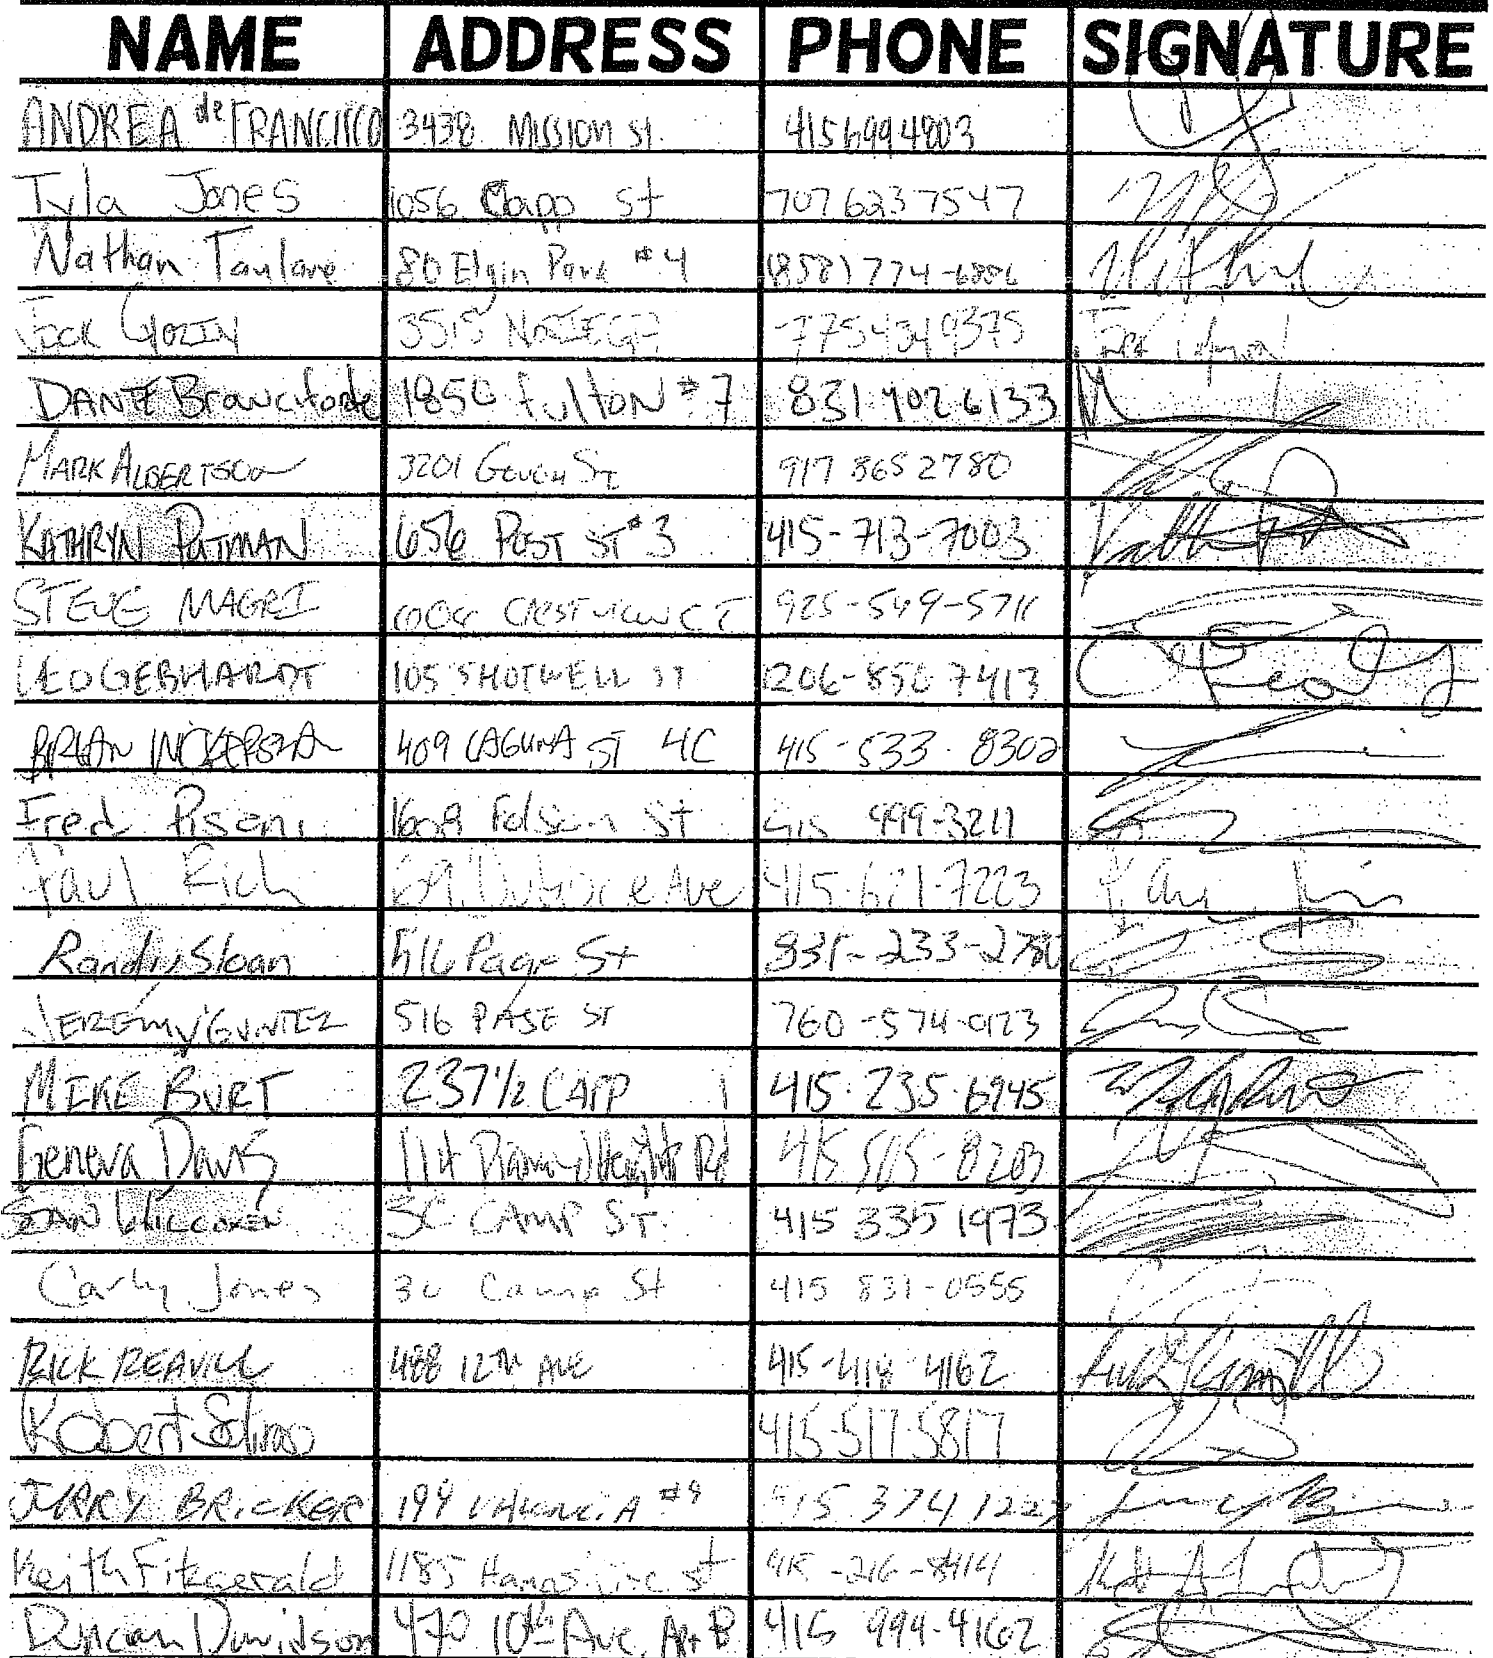 NAME ADDRESS PHONE SIGNATURE
ANDREA de FRANCISCO 3438 Mission St. 415 699 4803
Tyla Jones 1056 Capp St 707 623 7547
Nathan 80 Elgin Park #4 (858) 774-6886
Jack 3515 775
DANTE Branciforte 1850 Fulton #7 831 402 6133
MARK ALBERTSON 3201 Gough St 917 865 2780
KATHRYN PUTMAN 656 POST ST #3 415-713-7003
STEVE MAGRI CRESTVIEW CT 925-549-5711
LEO GEBHARDT 105 SHOTWELL ST 206-850-7413 Leo
BRIAN 409 LAGUNA ST 4C 415-533-8302
Fred Pisani Folsom St 415 999-3211
Paul Rich Duboce Ave 415-621-7223 Paul
Randy Sloan 516 Page St 831-233-2780
JEREMY 516 PAGE ST 760-574-0123
MIKE BURT 237 1/2 CAPP 415-235-6945
Geneva Davis 114 Diamond Heights 415 515-8203
SEAN WILLCOXEN 3C CAMP ST. 415 335 1973
Carly Jones 3c Camp St 415 831-0555
RICK REAVILL 488 12TH AVE 415-418-4162
Robert 415-517-5817
JERRY BRICKER 194 VALENCIA #9 415 374 1227
Keith Fitzgerald 1185 St 415-216-8414
Duncan Davidson 470 10th Ave. Apt B 415 994-4162